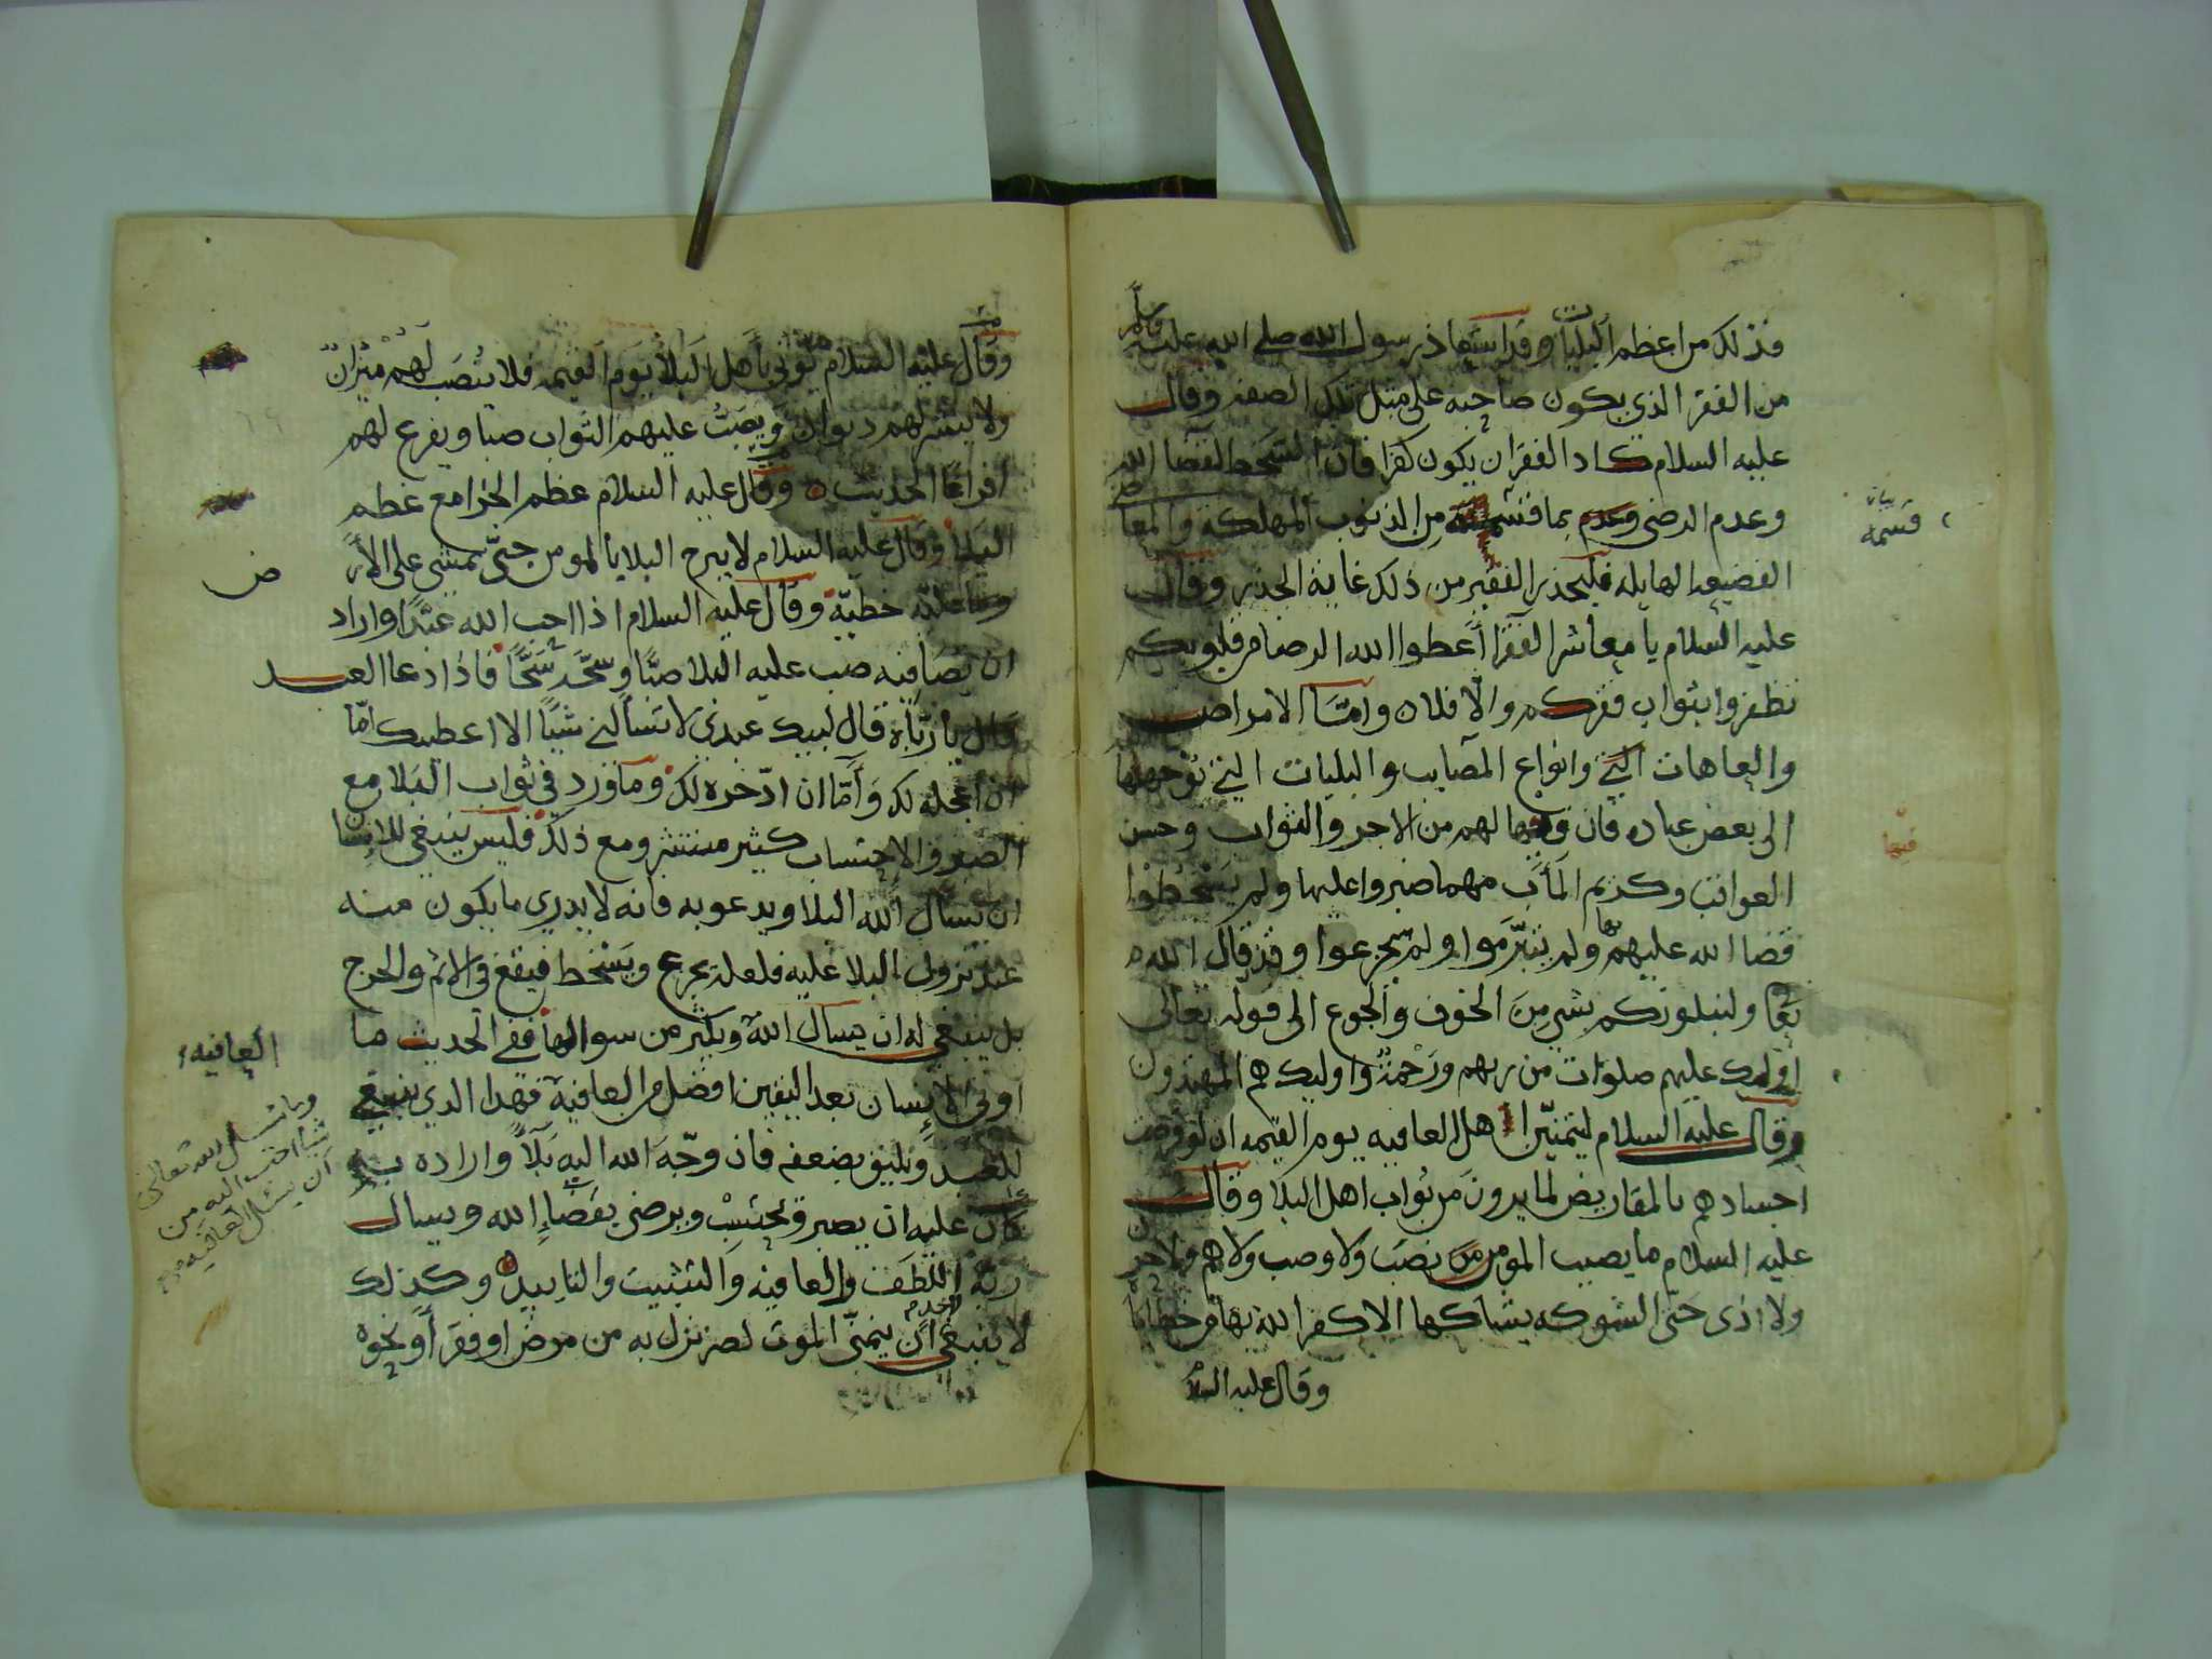 فذلك من اعظم البليات وقد استعاذ رسول الله صلى الله عليه وسلم
من الفقر الذي يكون صاحبه على مثل تلك الصفه وقال
عليه السلام كاد الفقر ان يكون كفرا فان التسخط لقضا الله
وعدم الرضى بما قسمه من الذنوب المهلكه والمعاصي
الفضيعه الهايله فليحذر الفقير من ذلك غاية الحذر وقال
عليه السلام يا معاشر الفقرا أعطوا الله الرضا من قلوبكم
تظفروا بثواب فقركم والّا فلا ه وامّا الامراض
والعاهات التي وانواع المصايب والبليات التي توجهها
الى بعض عباده فان فيها لهم من الاجر والثواب وحسن
العواقب وكريم المَأَب مهما صبروا عليها ولم يَسْخطوا
قضا الله عليهم بها ولم يتبرَّموا ولم يجزعوا وقد قال الله
تعا ولنبلونكم بشي مِنَ الخوف والجوع الى قوله تعالى
اوليك عليهم صلوات من ربهم ورَحْمَةٌ واوليك هم المهتدون
وقال عليه السلام ليتمنيّن اهل العافيه يوم القيمه ان لو قرضت
اجسادهم بالمقاريض لما يرون من ثواب اهل البلا وقال
عليه السلام ما يصيب المومن من نصب ولا وصب ولا هم ولا حزن
ولا اذى حتى الشوكه يشاكها الا كفر الله بها من خطاياه
وقال عليه السلا
قسمه
بيان
فيها
وقال عليه السلام يؤتى بأهل البَلا يوم القيمه فلا يُنصَب لهم ميزانٌ
ولا ينشر لهم ديوان ويُصَبُّ عليهم الثواب صبا ويفرغ لهم
افراغًا الحديث ه وقال عليه السلام عظم الجزا مع عظم
البلا وقال عليه السلام لا يبرح البلا بالمومن حتى يمشي على الأر
ض
وما عليه خطيّة وقال عليه السلام اذا احب الله عبدًا واراد
ان يصافيه صب عليه البلا صبًّا وسحَّه سَحًّا فاذا دعا العبد
قال يا ربّاه قال لبيك عبدي لا تسألني شيًا الا اعطيتك امّا
ان اعجله لك وَأَمَّا ان ادّخره لك وما ورد في ثواب البَلا مع
الصبر والاحتساب كثير منتشر ومع ذلك فليس ينبغي للانسان
ان يسأل الله البلا ويدعو به فانه لا يدري ما يكون منه
عند نزول البلا عليه فلعله يجزع ويَسْخط فيقع في الاثم والحرج
بل ينبغي له ان يسال اللهَ ويكثر من سوالها ففي الحديث ما
العافيه
اوتي الانسان بعد اليقين افضل من العافية فهذا الذي ينبغي
للعبد ويليق بضعفه فان وجّهَ الله اليه بَلاًّ واراده به
كان عليه ان يصبر ويحتسِبْ ويرضى بقضَاءِ الله ويسال
ربّه اللطف والعافيه والتثبيت والتاييد ه وكذلك
لا ينبغي لاحدٍ ان يتمنّى الموت لضر نزل به من مرض او فقر أو نحوه
وما سئل الله تعالى
شيا احب اليه من
ان يسئل العافيه